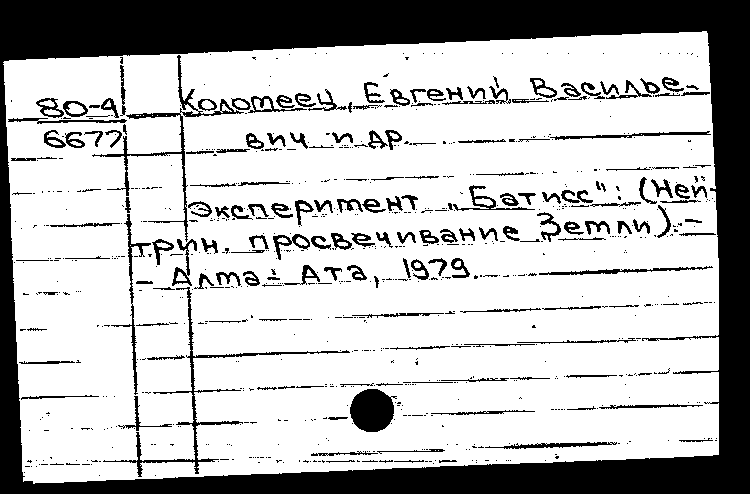 80-4 Колотеец, Евгений Василье-
6677 вич и др.
Эксперимент „Батисс": (Ней-
трин. просвечивание Земли). -
- Алма-Ата, 1979.